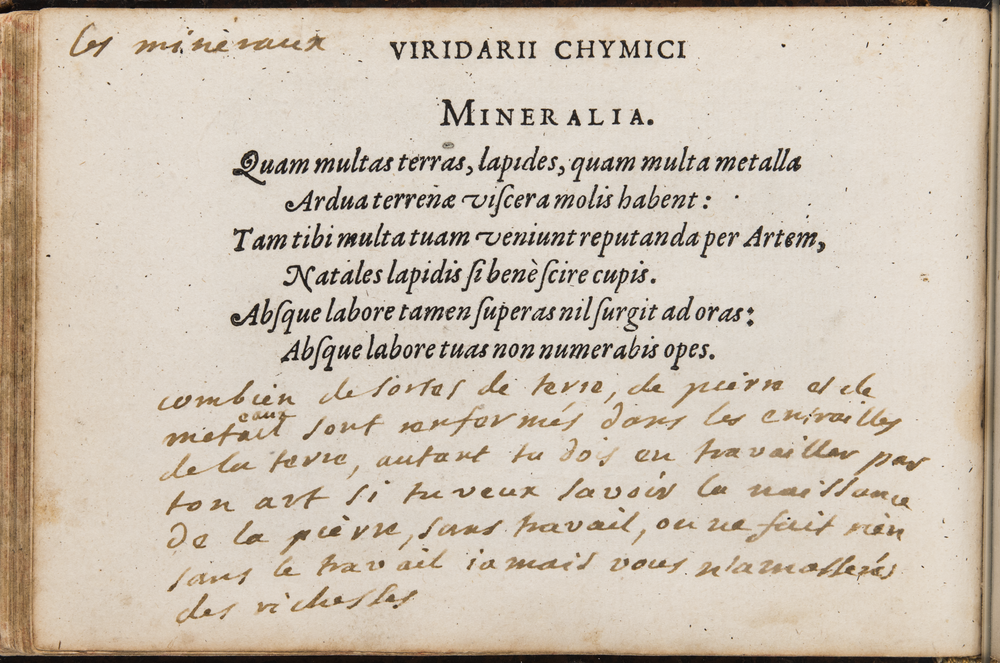 les minéraux
VIRIDARII CHYMICI
MINERALIA.
Quam multas terras, lapides, quam multa metalla
Ardua terrenæ viſcera molis habent:
Tam tibi multa tuam veniunt reputanda per Artem,
Natales lapidis ſi benè ſcire cupis.
Abſque labore tamen ſuperas nil ſurgit ad oras:
Abſque labore tuas non numerabis opes.
combien de sortes de terre, de pierre et de
metaux sont renfermés dans les entrailles
de la terre, autant tu dois en travailler par
ton art si tu veux savoir la naissance
de la pierre, sans travail, on ne fait rien
sans le travail iamais vous n'amasserés
des richesses